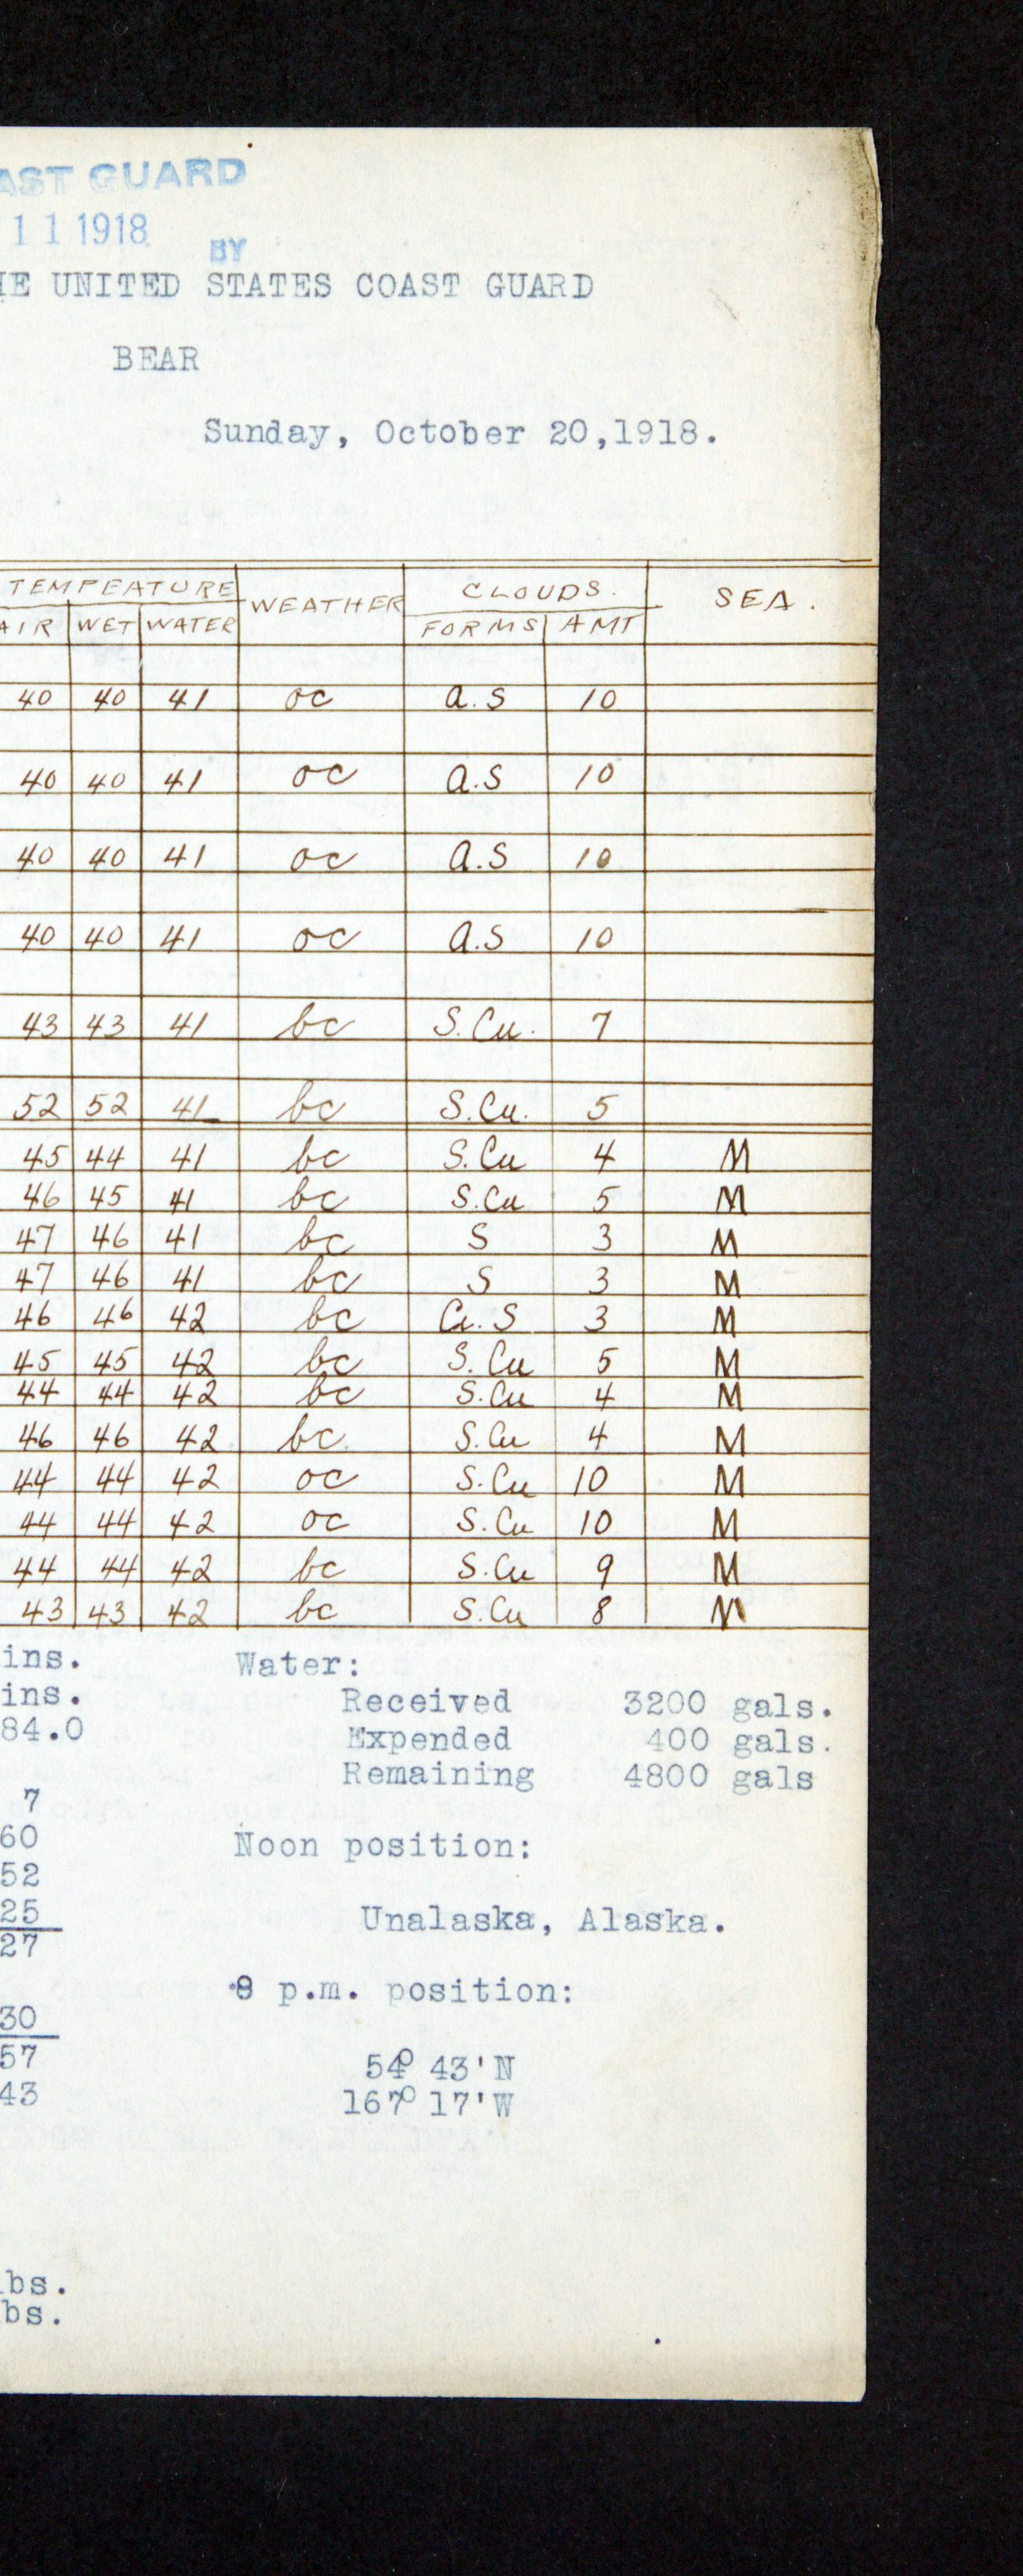 AST GUARD
11 1918
BY
HE UNITED STATES COAST GUARD
BEAR
Sunday, October 20,1918.
TEMPEATURE WEATHER CLOUDS. SEA.
AIR WET WATER FORMS AMT
40 40 41 oc a.s 10
40 40 41 oc a.s 10
40 40 41 oc a.s 10
40 40 41 oc a.s 10
43 43 41 bc S.Cu. 7
52 52 41 bc S.Cu. 5
45 44 41 bc S.Cu 4 M
46 45 41 bc S.Cu 5 M
47 46 41 bc S 3 M
47 46 41 bc S 3 M
46 46 42 bc Ci.S 3 M
45 45 42 bc S.Cu 5 M
44 44 42 bc S.Cu 4 M
46 46 42 bc. S.Cu 4 M
44 44 42 oc S.Cu 10 M
44 44 42 oc S.Cu 10 M
44 44 42 bc S.Cu 9 M
43 43 42 bc S.Cu 8 M
ins. Water:
ins. Received 3200 gals.
84.0 Expended 400 gals.
Remaining 4800 gals
7
60 Noon position:
52
25 Unalaska, Alaska.
27
8 p.m. position:
30
57 54° 43'N
43 167° 17'W
lbs.
bs.